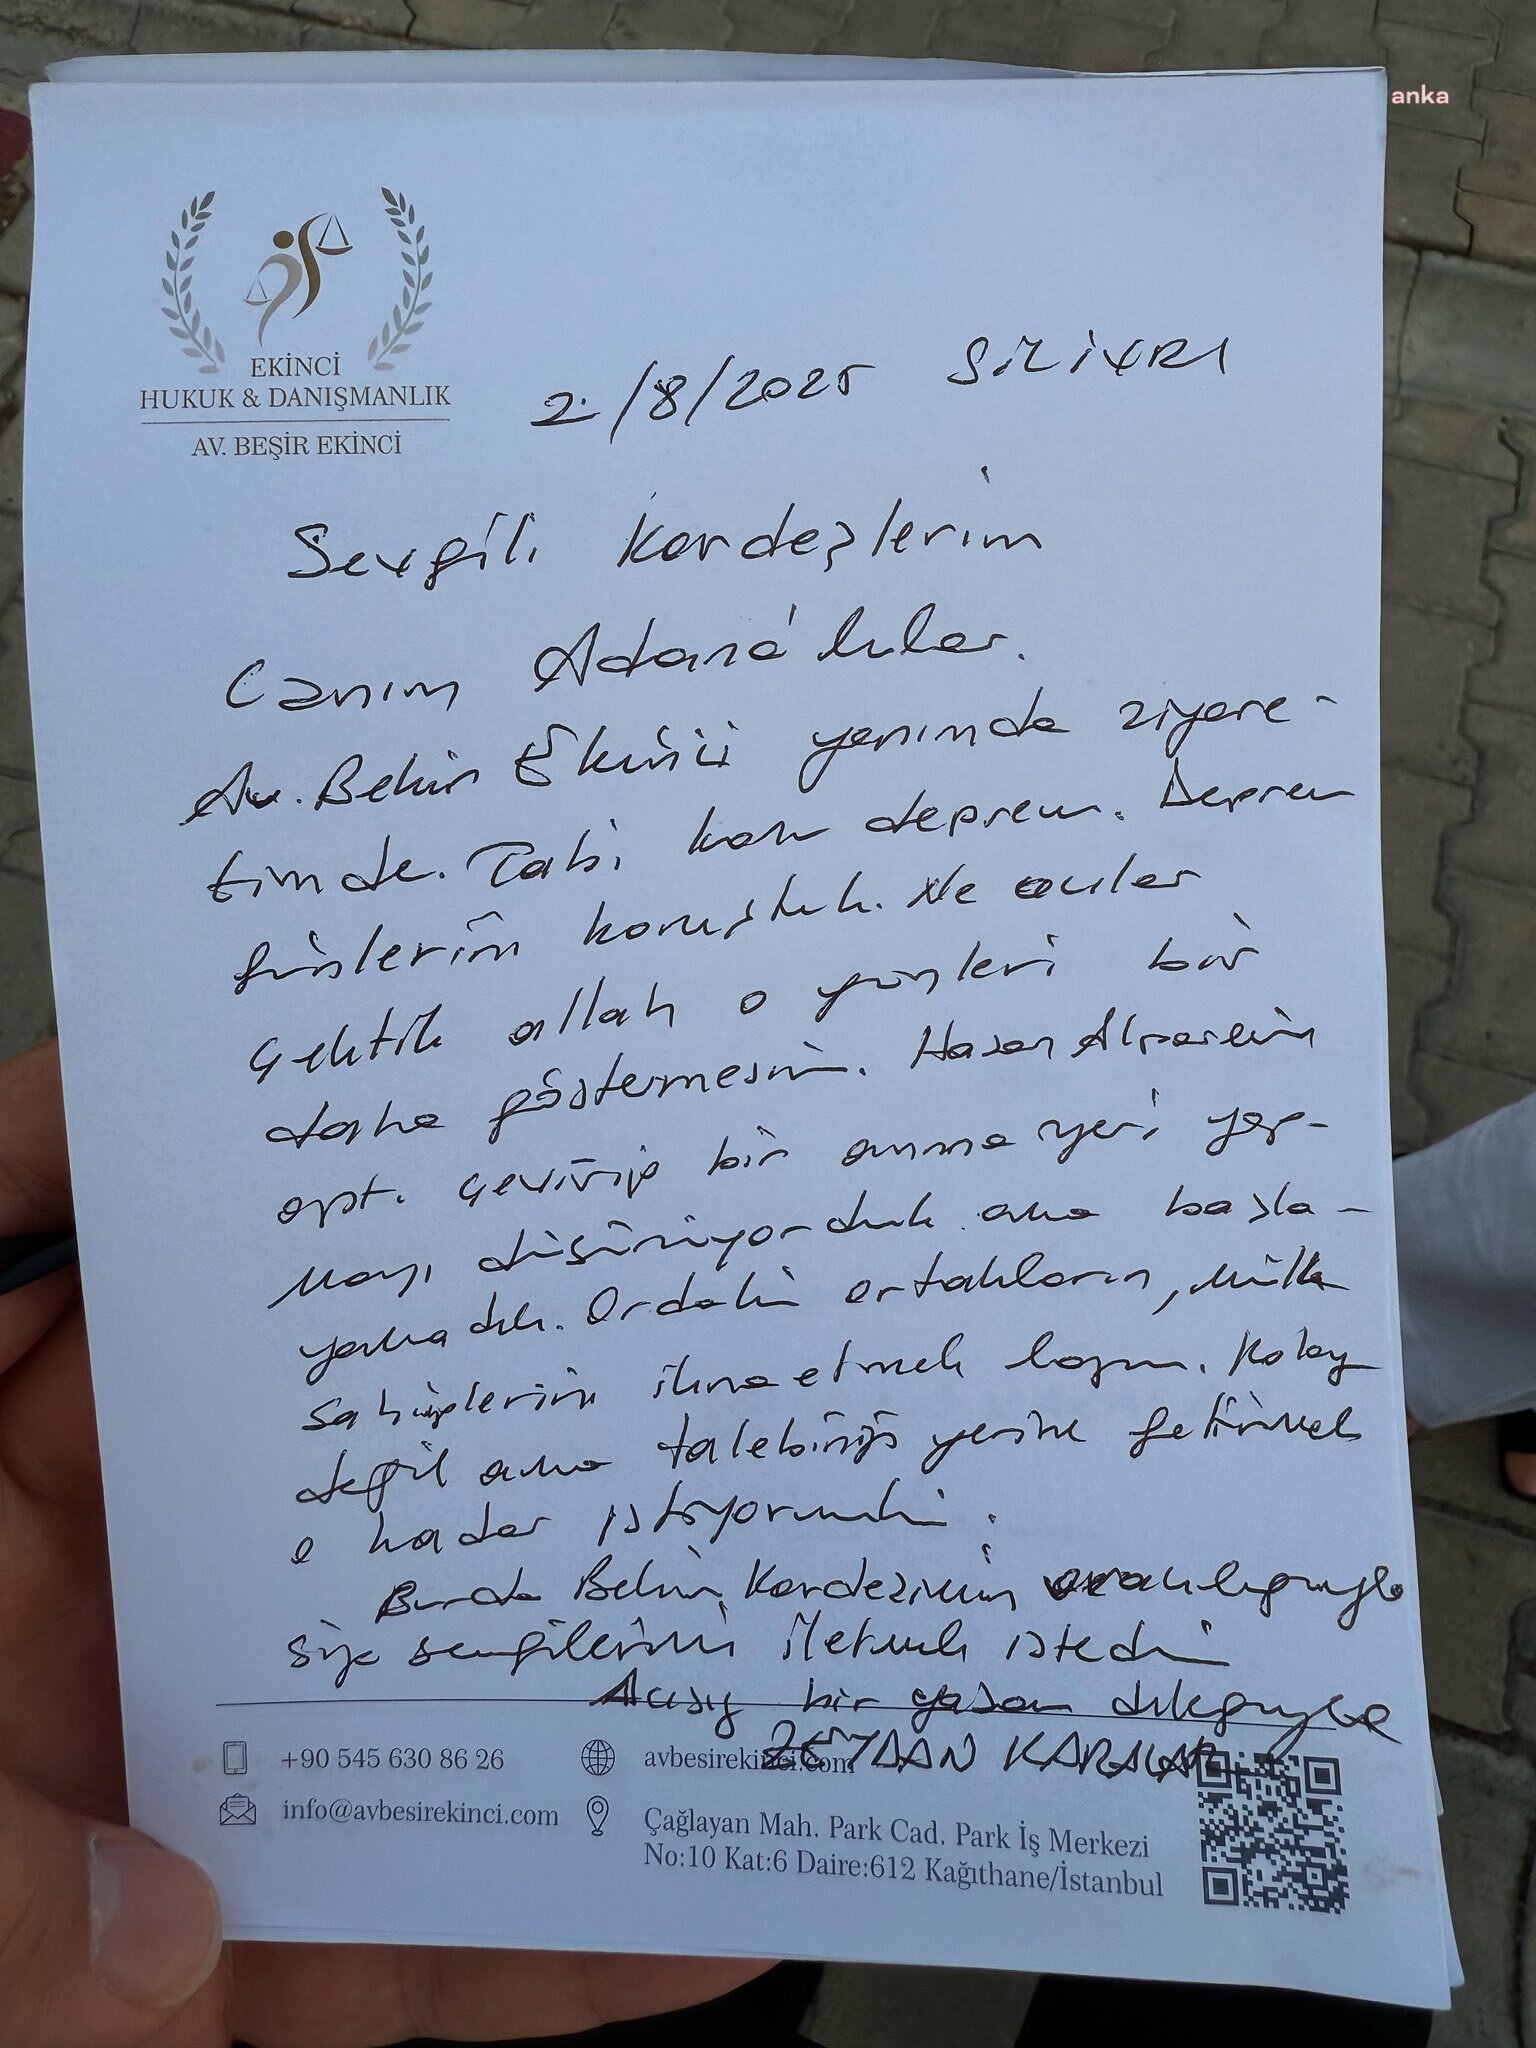 anka
EKİNCİ
HUKUK & DANIŞMANLIK
AV. BEŞİR EKİNCİ
2/8/2025 SİLİVRİ
Sevgili Kardeşlerim
Canım Adana'lılar.
Av. Bekir Ekinci yanımda ziyare-
timde. Tabi konu deprem. Deprem
günlerini konuştuk. Ne acılar
çektik allah o günleri bir
daha göstermesin. Hasan Alpargün
apt. çevirip bir anma yeri yap-
mayı düşünüyorduk ama başla-
yamadık. Ordaki ortakların, mülk
sahiplerini ikna etmek lazım. Kolay
değil ama talebinizi yerine getirmek
o kadar istiyorumki.
Burda Bekir Kardeşimin aracılığıyla
size sevgilerimi iletmek istedim
Acısız bir yaşam dileğiyle
ZEYDAN KARALAR
+90 545 630 86 26
avbesirekinci.com
info@avbesirekinci.com
Çağlayan Mah. Park Cad. Park İş Merkezi
No:10 Kat:6 Daire:612 Kağıthane/İstanbul